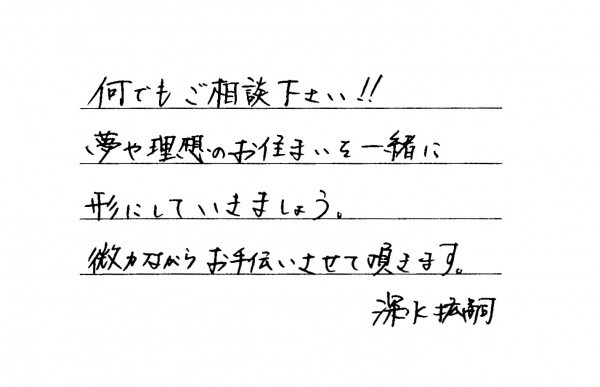 何でもご相談下さい!!
夢や理想のお住まいを一緒に
形にしていきましょう。
微力ながらお手伝いさせて頂きます。
深水 拡嗣